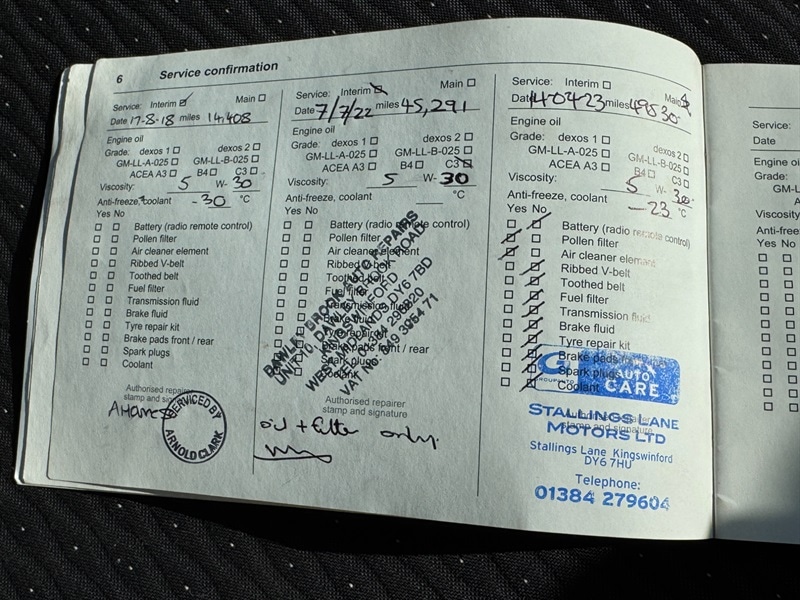 6 Service confirmation
Service: Interim ☑ Main ☐
Date 17-8-18 miles 14,408
Engine oil
Grade: dexos 1 ☐ dexos 2 ☐
GM-LL-A-025 ☐ GM-LL-B-025 ☐
ACEA A3 ☐ B4 ☐ C3 ☐
Viscosity: 5 W- 30
Anti-freeze, coolant -30 °C
Yes No
Battery (radio remote control)
Pollen filter
Air cleaner element
Ribbed V-belt
Toothed belt
Fuel filter
Transmission fluid
Brake fluid
Tyre repair kit
Brake pads front / rear
Spark plugs
Coolant
Authorised repairer
stamp and signature
SERVICED BY
ARNOLD CLARK
Service: Interim ☒ Main ☐
Date 7/7/22 miles 45,291
Engine oil
Grade: dexos 1 ☐ dexos 2 ☐
GM-LL-A-025 ☐ GM-LL-B-025 ☐
ACEA A3 ☐ B4 ☐ C3 ☒
Viscosity: 5 W- 30
Anti-freeze, coolant °C
Yes No
Battery (radio remote control)
Pollen filter
Air cleaner element
Ribbed V-belt
Toothed belt
Fuel filter
Transmission fluid
Brake fluid
Tyre repair kit
Brake pads front / rear
Spark plugs
Coolant
DAWLEY BROOK AUTO REPAIRS
UNIT 10, DAWLEY BROOK ROAD
KINGSWINFORD
WEST MIDLANDS DY6 7BD
VAT No: 849 3954 71
Authorised repairer
stamp and signature
oil + filter only.
Service: Interim ☐ Main ☒
Date 14-04-23 miles 49530
Engine oil
Grade: dexos 1 ☐ dexos 2 ☐
GM-LL-A-025 ☐ GM-LL-B-025 ☐
ACEA A3 ☐ B4 ☐ C3 ☐
Viscosity: 5 W- 30
Anti-freeze, coolant -23 °C
Yes No
Battery (radio remote control)
Pollen filter
Air cleaner element
Ribbed V-belt
Toothed belt
Fuel filter
Transmission fluid
Brake fluid
Tyre repair kit
Brake pads
Spark plugs
Coolant
AUTO
CARE
Authorised repairer
stamp and signature
STALLINGS LANE
MOTORS LTD
Stallings Lane Kingswinford
DY6 7HU
Telephone:
01384 279604
Service:
Date
Engine oil
Grade:
Viscosity
Anti-free
Yes No